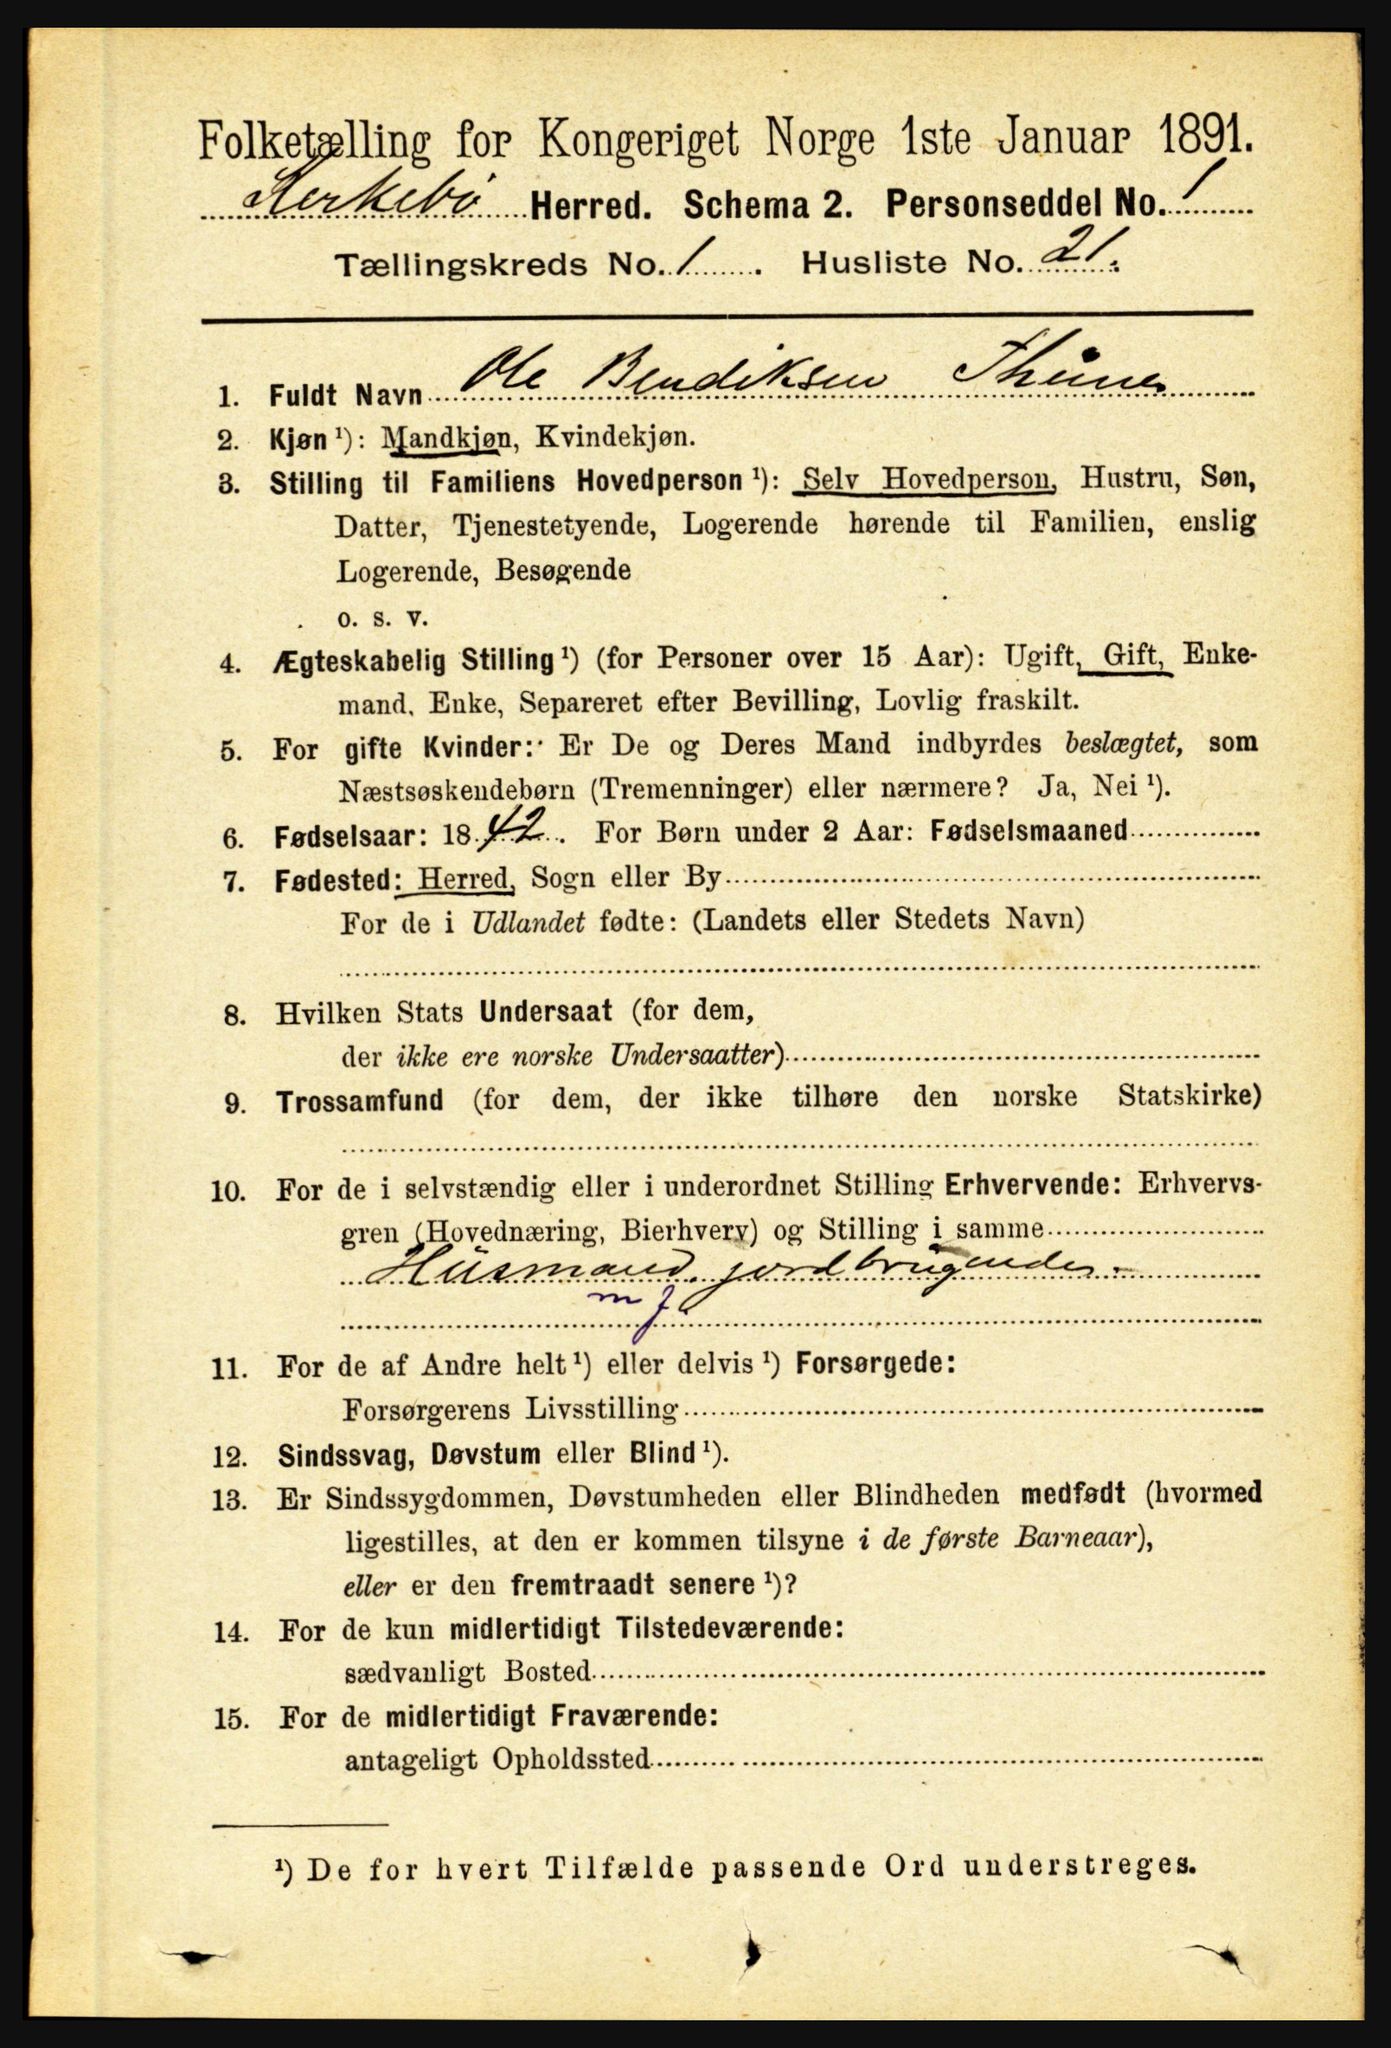 Folketælling for Kongeriget Norge 1ste Januar 1891.
Kerkebø Herred. Schema 2. Personseddel No. 1
Tællingskreds No. 1. Husliste No. 21.
1. Fuldt Navn Ole Bendiksen Thune
2. Kjøn ¹): Mandkjøn, Kvindekjøn.
3. Stilling til Familiens Hovedperson ¹): Selv Hovedperson, Hustru, Søn,
Datter, Tjenestetyende, Logerende hørende til Familien, enslig
Logerende, Besøgende
o. s. v.
4. Ægteskabelig Stilling ¹) (for Personer over 15 Aar): Ugift, Gift, Enke-
mand, Enke, Separeret efter Bevilling, Lovlig fraskilt.
5. For gifte Kvinder: Er De og Deres Mand indbyrdes beslægtet, som
Næstsøskendebørn (Tremenninger) eller nærmere? Ja, Nei ¹).
6. Fødselsaar: 1842. For Børn under 2 Aar: Fødselsmaaned
7. Fødested: Herred, Sogn eller By
For de i Udlandet fødte: (Landets eller Stedets Navn)
8. Hvilken Stats Undersaat (for dem,
der ikke ere norske Undersaatter)
9. Trossamfund (for dem, der ikke tilhøre den norske Statskirke)
10. For de i selvstændig eller i underordnet Stilling Erhvervende: Erhvervs-
gren (Hovednæring, Bierhverv) og Stilling i samme
Husmand, jordbrugende.
m j
11. For de af Andre helt ¹) eller delvis ¹) Forsørgede:
Forsørgerens Livsstilling
12. Sindssvag, Døvstum eller Blind ¹).
13. Er Sindssygdommen, Døvstumheden eller Blindheden medfødt (hvormed
ligestilles, at den er kommen tilsyne i de første Barneaar),
eller er den fremtraadt senere ¹)?
14. For de kun midlertidigt Tilstedeværende:
sædvanligt Bosted
15. For de midlertidigt Fraværende:
antageligt Opholdssted
¹) De for hvert Tilfælde passende Ord understreges.